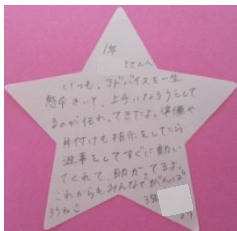 1年
さんへ
いつも、アドバイスを一生
懸命きいて、上手くなろうとして
るのが伝わってきたよ。準備や
片付けも指示をしてたら
返事をしてすぐに動い
てくれて、助かってるよ。
これからもみんなでがんば
ろうねっ